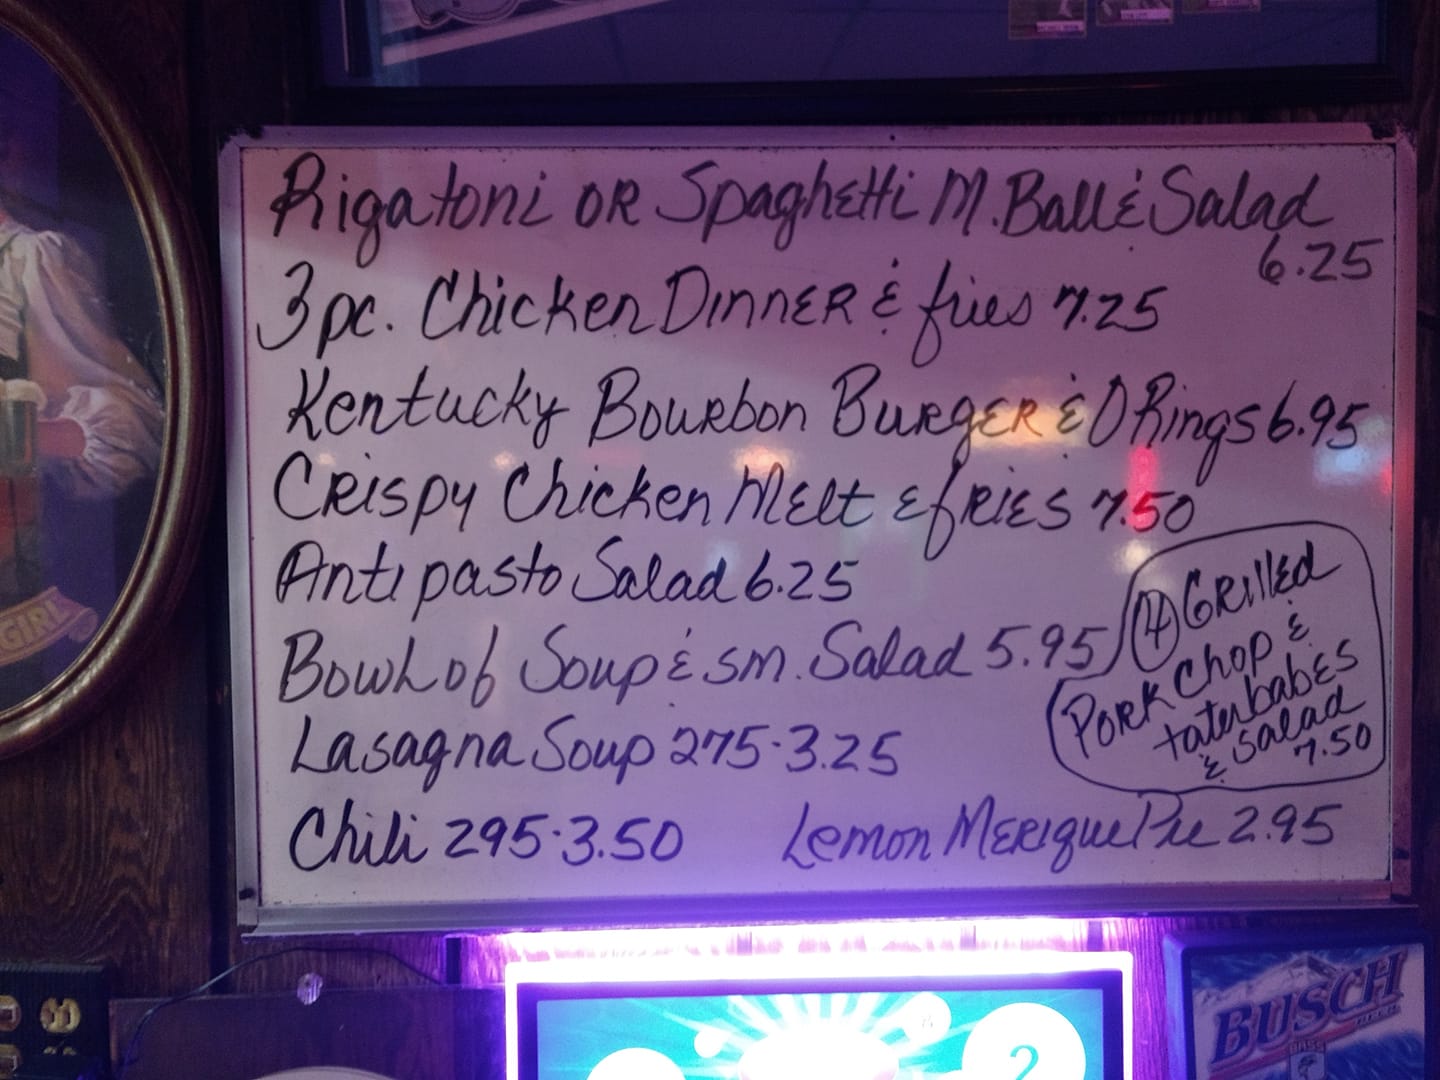 Rigatoni OR Spaghetti M. Ball & Salad
6.25
3 pc. Chicken Dinner & fries 7.25
Kentucky Bourbon Burger & O Rings 6.95
Crispy Chicken Melt & fries 7.50
Antipasto Salad 6.25
Bowl of Soup & sm. Salad 5.95
Lasagna Soup 275-3.25
Chili 295-3.50
Lemon Merique Pie 2.95
④ Grilled
Pork Chop &
taterbabes
& salad
7.50
GIRL
BUSCH
BEER
BASS
2